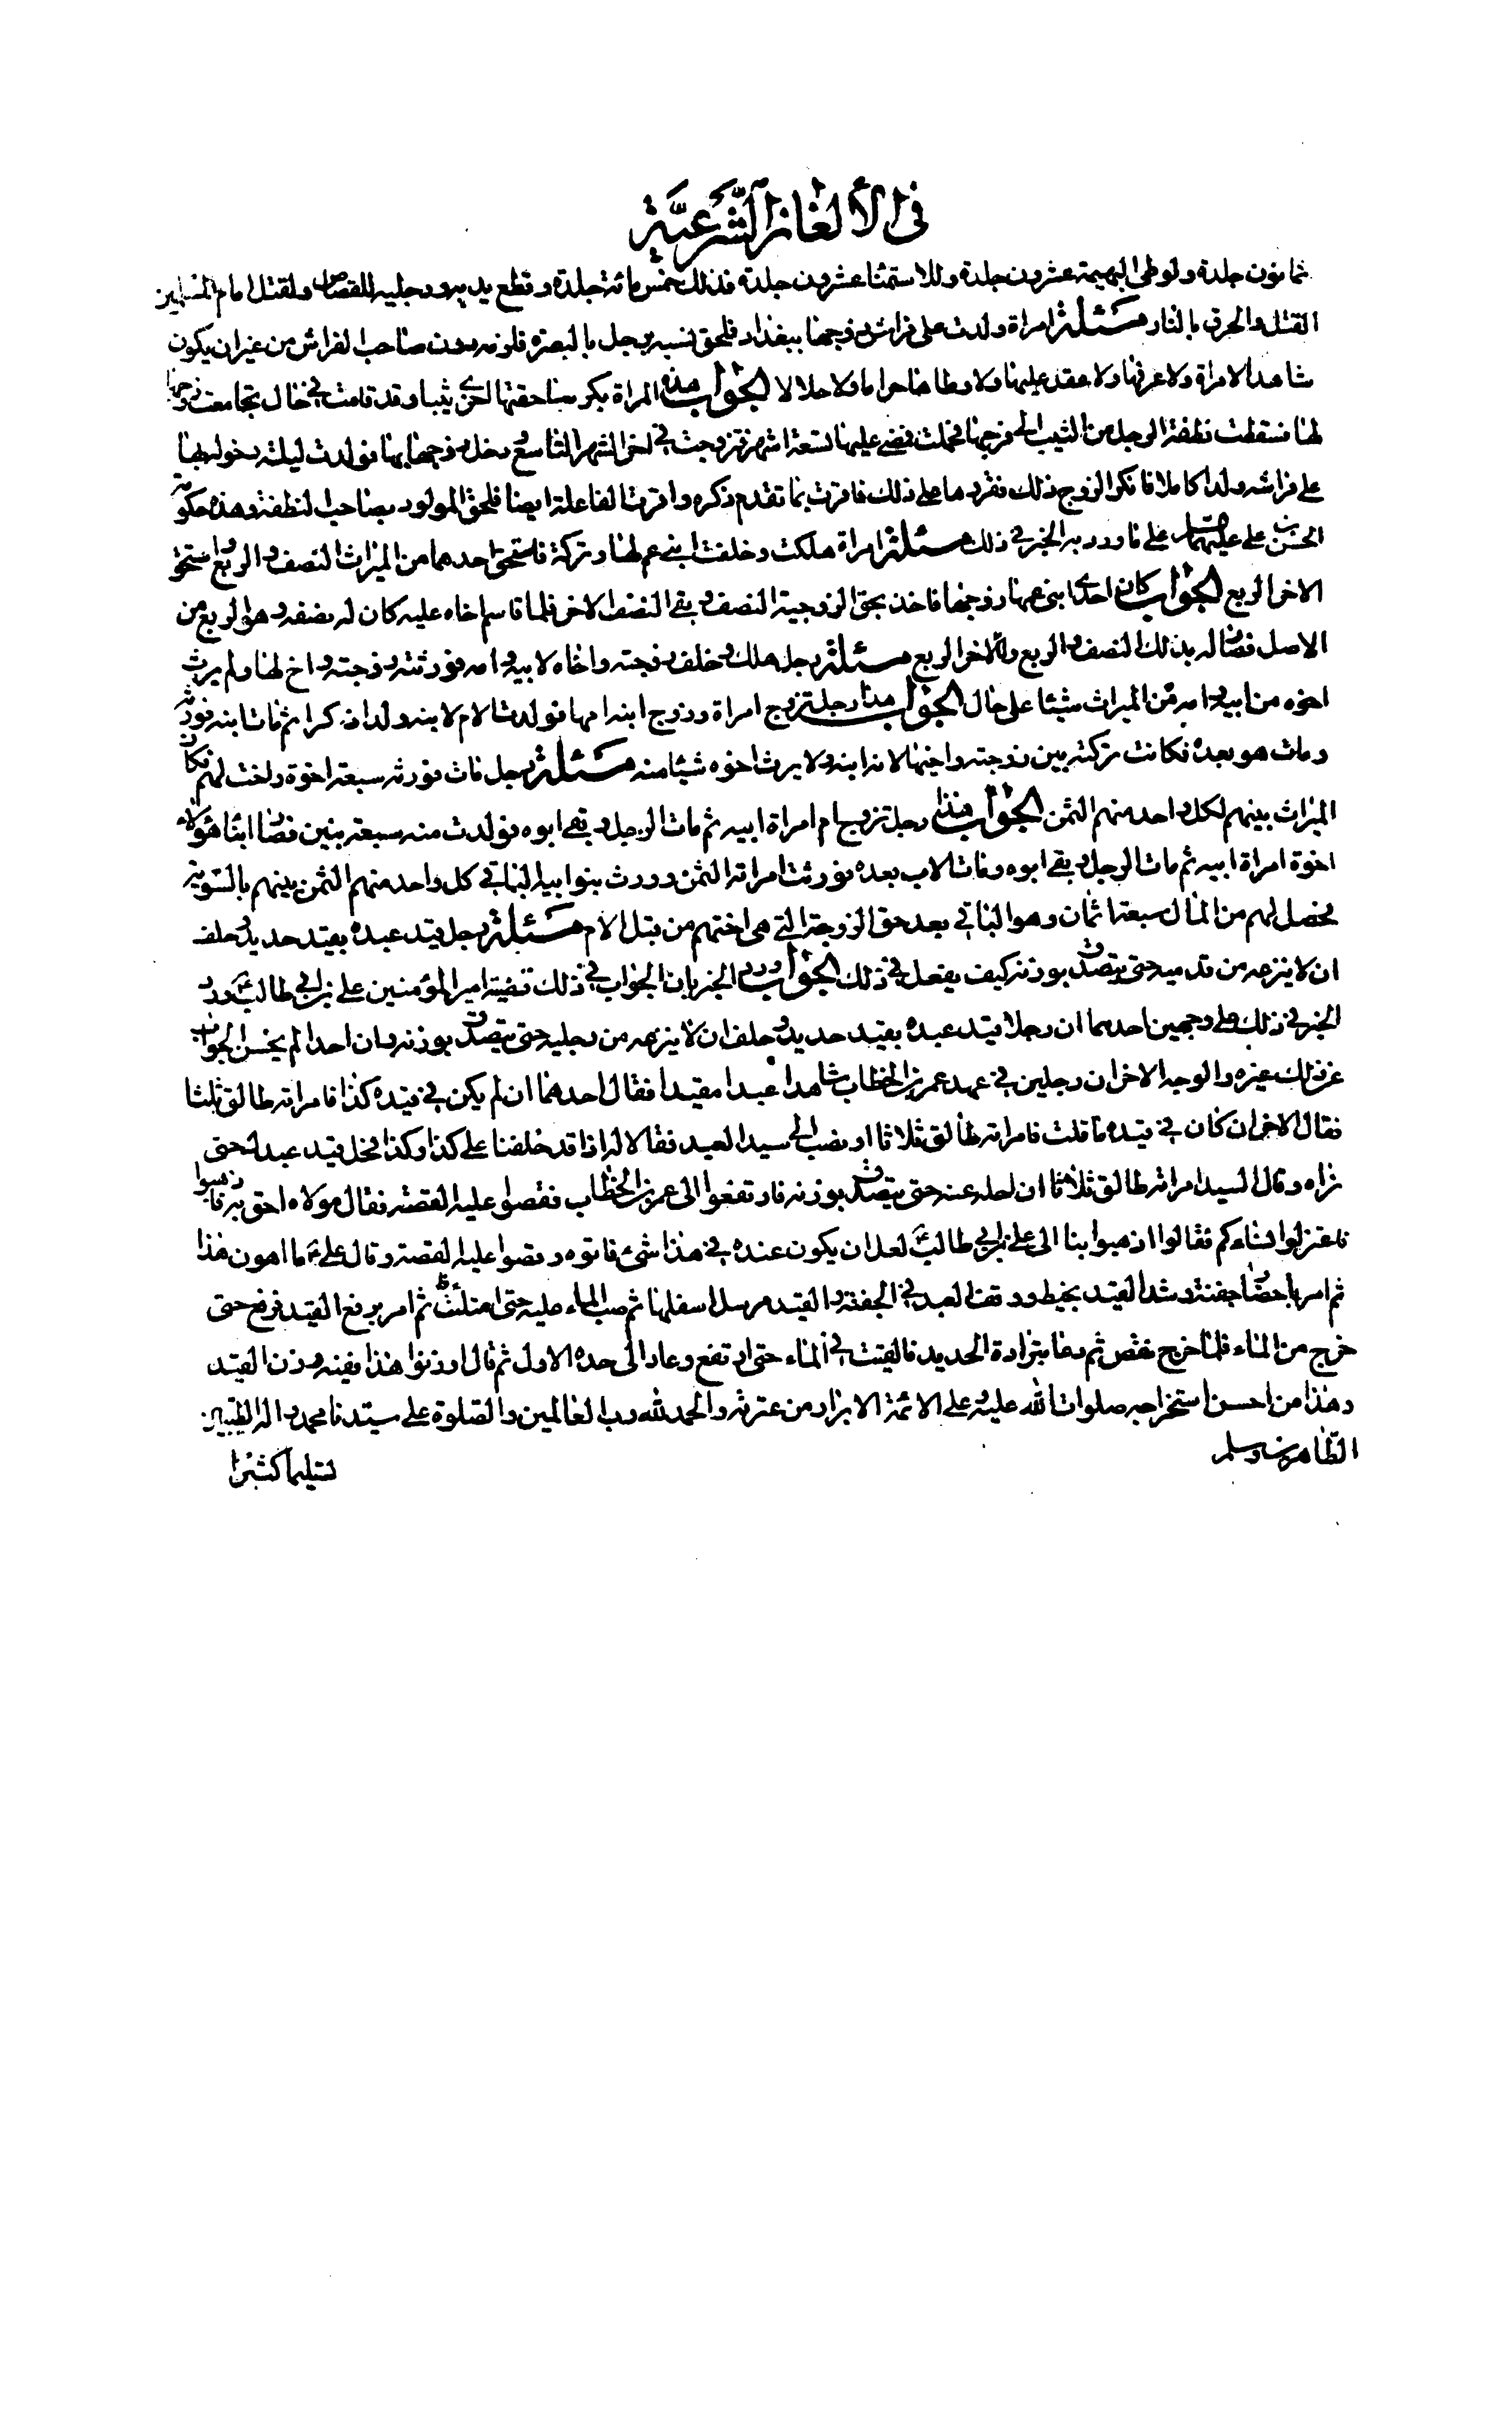 في الألغاز الشرعية
ثمانون جلدة ولوطى البهيمة عشرون جلدة وللاستمناء عشرون جلدة فذلك خمس مائة جلدة وقطع يديه ورجليه للقصاص ولقتل امام المسلمين
القتل والحرق بالنار مسئلة امراة ولدت على فراش زوجها ببغداد فلحق نسبه برجل بالبصرة فلزمه دون صاحب الفراش من غير ان يكون
شاهد الامراة ولا عرفها ولا عقد عليها ولا وطاها حراما ولا حلالا الجواب هذه المراة بكر ساحقتها اخرى ثيبا وقد قامت في حال مجامعت زوجها
لها فسقطت نطفة الرجل من الثيب الى فرجها فحملت فمضى عليها تسعة اشهر فتزوجت في اخر الشهر التاسع ودخل زوجها بها فولدت ليلة دخوله بها
على فراشه ولدا كاملا فانكر الزوج ذلك فقررها على ذلك فاقرت بما تقدم ذكره واقرت الفاعلة ايضا فلحق المولود بصاحب النطفة وهذه حكومة
الحسن بن على عليهما السلام على ما ورد به الخبر في ذلك مسئلة امراة هلكت وخلفت ابنى عم لها وتركة فاستحق احدهما من الميراث النصف والربع واستحق
الاخر الربع الجواب كان احد ابنى عمها زوجها فاخذ بحق الزوجية النصف وبقى النصف الاخر فلما قاسم اخاه عليه كان له نصفه وهو الربع من
الاصل فصار له بذلك النصف والربع وللاخر الربع مسئلة رجل هلك وخلف زوجته واخاه لابيه وامه فورثته زوجته واخ لها ولم يرث
اخوه من ابيه وامه من الميراث شيئا على حال الجواب هذا رجل تزوج امراة وزوج ابنه امها فولدت الام لابنه ولدا ذكرا ثم مات ابنه فورثه
ومات هو بعده فكانت تركته بين زوجته واخيها لانه ابن ابنه ولا يرث اخوه شيئا منه مسئلة رجل مات فورثه سبعة اخوة واخت لهم فكان
الميراث بينهم لكل واحد منهم الثمن الجواب هذا رجل تزوج ام امراة ابيه ثم مات الرجل وبقى ابوه فولدت منه سبعة بنين فصار ابناء هؤلاء
اخوة امراة ابيه ثم مات الرجل وبقى ابوه ومات الاب بعده فورثت امراته الثمن وورث بنوا ابنه الباقى كل واحد منهم الثمن بينهم بالسوية
يحصل لهم من المال سبعة اثمان وهو الباقي بعد حق الزوجة التى هى اختهم من قبل الام مسئلة رجل قيد عبده بقيد حديد وحلف
ان لا ينزعه من قدميه حتى يتصدق بوزنه كيف يفعل في ذلك الجواب ورد الخبر بان الجواب في ذلك قضية امير المؤمنين على بن ابى طالب ع وورد
الخبر في ذلك على وجهين احدهما ان رجلا قيد عبده بقيد حديد وحلف ان لا ينزعه من رجليه حتى يتصدق بوزنه وان احدا لم يحسن الجواب
عن ذلك غيره والوجه الاخر ان رجلين في عهد عمر بن الخطاب شاهدا عبدا مقيدا فقال احدهما ان لم يكن في قيده كذا فامراته طالق ثلثا
فقال الاخر ان كان في قيده ما قلت فامراته طالق ثلاثا اومضيا الى سيد العبد فقالا له انا قد حلفنا على كذا وكذا فحل قيد عبدك حتى
نراه وقال السيد امراته طالق ثلاثا ان احله عنه حتى يتصدق بوزنه فارتفعوا الى عمر بن الخطاب فقصوا عليه القصة فقال مولاه احق به فاذهبوا
فاعتزلوا نساءكم فقالوا اذهبوا بنا الى على بن ابى طالب ع لعل ان يكون عنده في هذا شئ فاتوه وقصوا عليه القصة وقال على ع ما اهون هذا
ثم امر باحضار جفنة وشد القيد بخيط ووقف العبد في الجفنة والقيد مرسل في اسفلها ثم صب الماء عليه حتى امتلئت ثم امر برفع القيد فرفع حتى
خرج من الماء فلما خرج نقص ثم دعا ببرادة الحديد فالقيت في الماء حتى ارتفع وعاد الى حده الاول ثم قال اوزنوا هذا ففيه وزن القيد
وهذا من احسن استخراجه صلوات الله عليه وعلى الائمة الابرار من عترته والحمد لله رب العالمين والصلوة على سيدنا محمد واله الطيبين
الطاهرين وسلم تسليما كثيرا